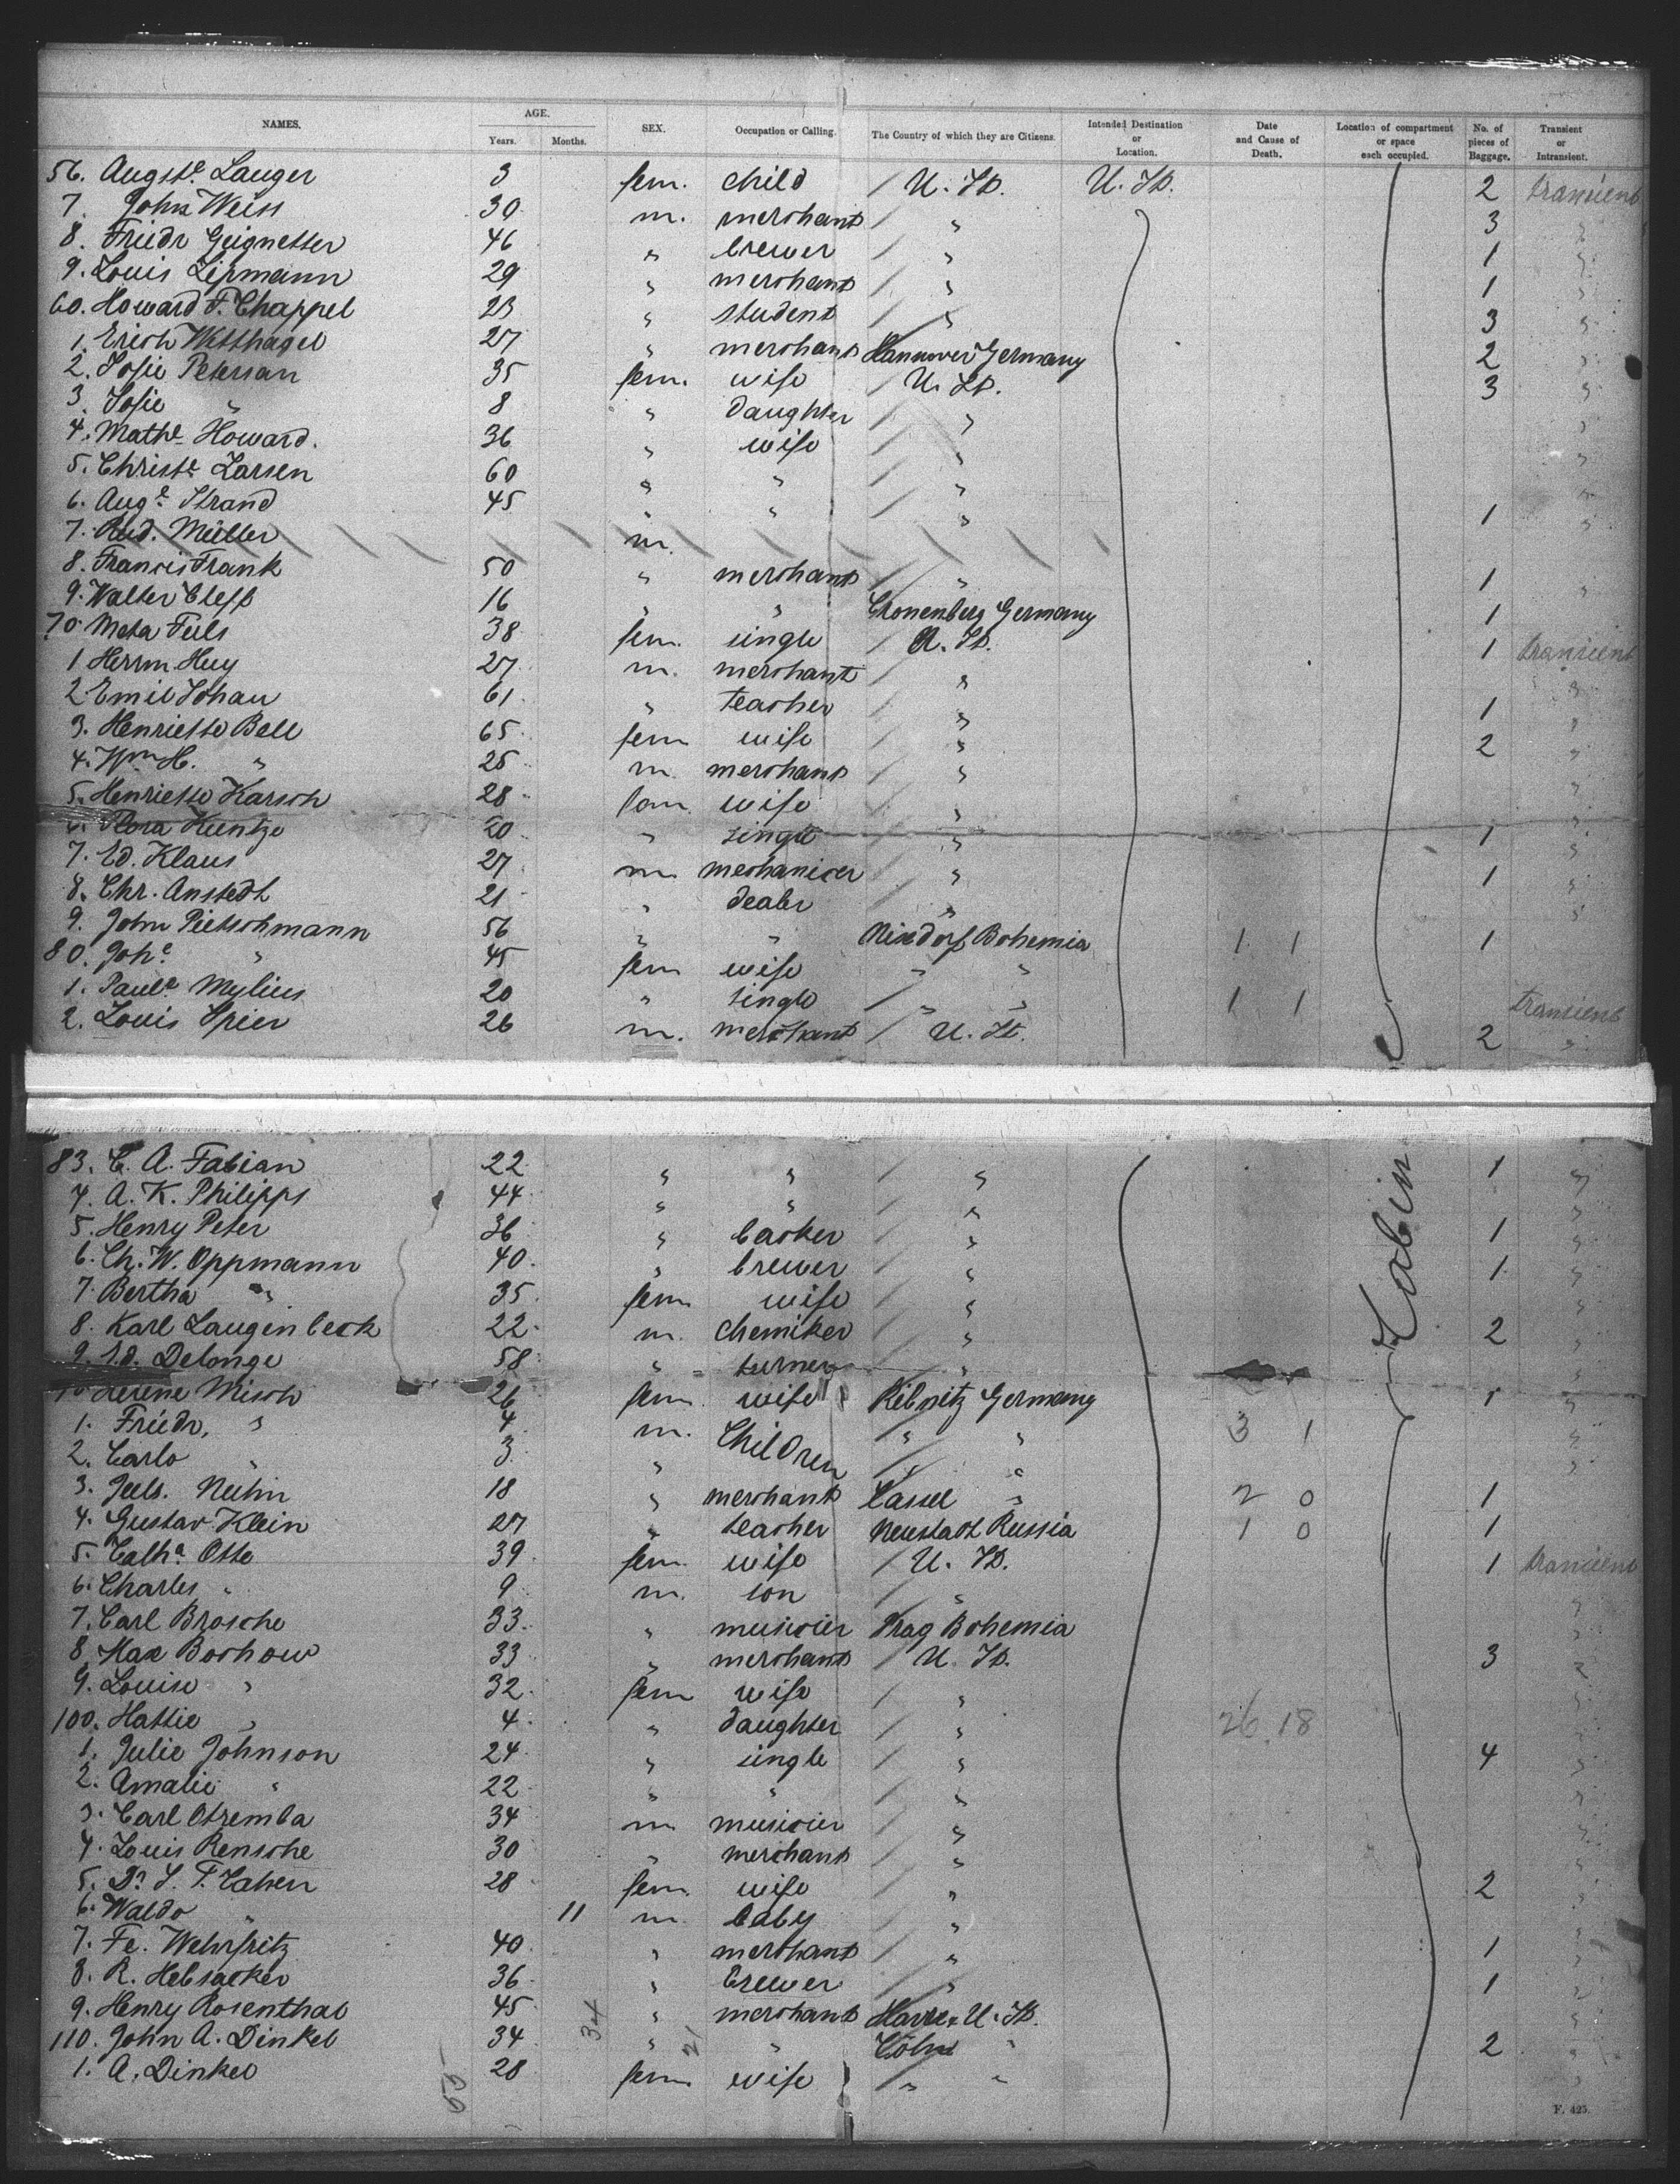 NAMES. AGE. Years. Months. SEX. Occupation or Calling. The Country of which they are Citizens. Intended Destination or Location. Date and Cause of Death. Location of compartment or space each occupied. No. of pieces of Baggage. Transient or Intransient.
56. Augste. Lauger 3 fem. child / U. St. U. St. 2 transient
7. John Weiss 30 m. merchant / " 3 "
8. Friedr 46 " brewer / " 1 "
9. Louis Lipmann 29 " merchant / " 1 "
60. Howard F. Chappel 23 " student / " 3 "
1. Erich Witthagel 27 " merchant Hannover Germany 2 "
2. Sofie Petersan 35 fem. wife / U. St. 3 "
3. Sofie " 8 " daughter / " "
4. Mathe Howard. 36 " wife / " "
5. Christe Larsen 60 " " / " "
6. Auge. Strand 45 " " / " 1 "
7. Rud. Müller m.
8. Francis Frank 50 " merchant / " 1 "
9. Walter Cleff 16 " " Cronenberg Germany 1
70 Meta Fuls 38 fem. single / U. St. 1 transient
1 Herrm. Huy 27 m. merchant / " "
2 Emil Schau 61 " teacher / " 1 "
3. Henriette Bell 65 fem wife / " 2 "
4. Wm H. " 25 m. merchant / " "
5. Henriette Karsch 28 fem. wife / " "
6. Flora Kuntze 20 " single / " 1 "
7. Ed. Klaus 27 m mechanicer / " 1 "
8. Chr. Anstedt 21 " dealer / " "
9. John Pietschmann 56 " " Nixdorf Bohemia 1 1 1
80. Johe. " 45 fem wife " "
1. Paule. Mylius 20 " single / " " 1 1 transient
2. Louis Spier 26 m. merchant / U. St. 2 "
83. C. A. Fabian 22 " " / " 1 "
4. A. K. Philipps 44 " " / " "
5. Henry Peter 36 " backer / " 1 "
6. Ch. W. Oppmann 40 " brewer / " 1 "
7. Bertha " 35 fem wife / " "
8. Karl Laugenbeck 22 m. chemiker / " Cabin 2 "
9. Ed. Delonge 58 " turner / " "
Misch 26 fem wife Ribnitz Germany 1 "
1. Friedr. " 4 m. Children " " 3 1 "
2. Carlo " 3 " / " " "
3. Juls. Nuhn 18 " merchant Cassel " 2 0 1
4. Gustav Klein 27 " teacher Neustadt Russia 1 0 1
5. Catha. Otte 39 fem. wife / U. St. 1 transient
6. Charles " 9 m. son / " "
7. Carl Brosche 33 " musicier Prag Bohemia "
8. Max Bochow 33 " merchant / U. St. 3 "
9. Louise " 32 fem wife / " "
100. Hattie " 4 " daughter / " 26 18 "
1. Julie Johnson 24 " single / " 4 "
2. Amalie " 22 " " / " "
3. Carl Otremba 34 m musicier / " "
4. Louis Rensche 30 " merchant / " "
5. Dr. S. F. Cahen 28 fem. wife / " 2 "
6. Waldo " 11 m baby / " "
7. Fe. Wehrfritz 40 " merchant / " 1 "
8. R. Hebsacker 36 " brewer / " 1 "
9. Henry Rosenthal 45 " merchant U. St. "
110. John A. Dinkel 34 " " " 2 "
1. A. Dinkel 28 fem. wife / " " "
55 34 21
F. 425.